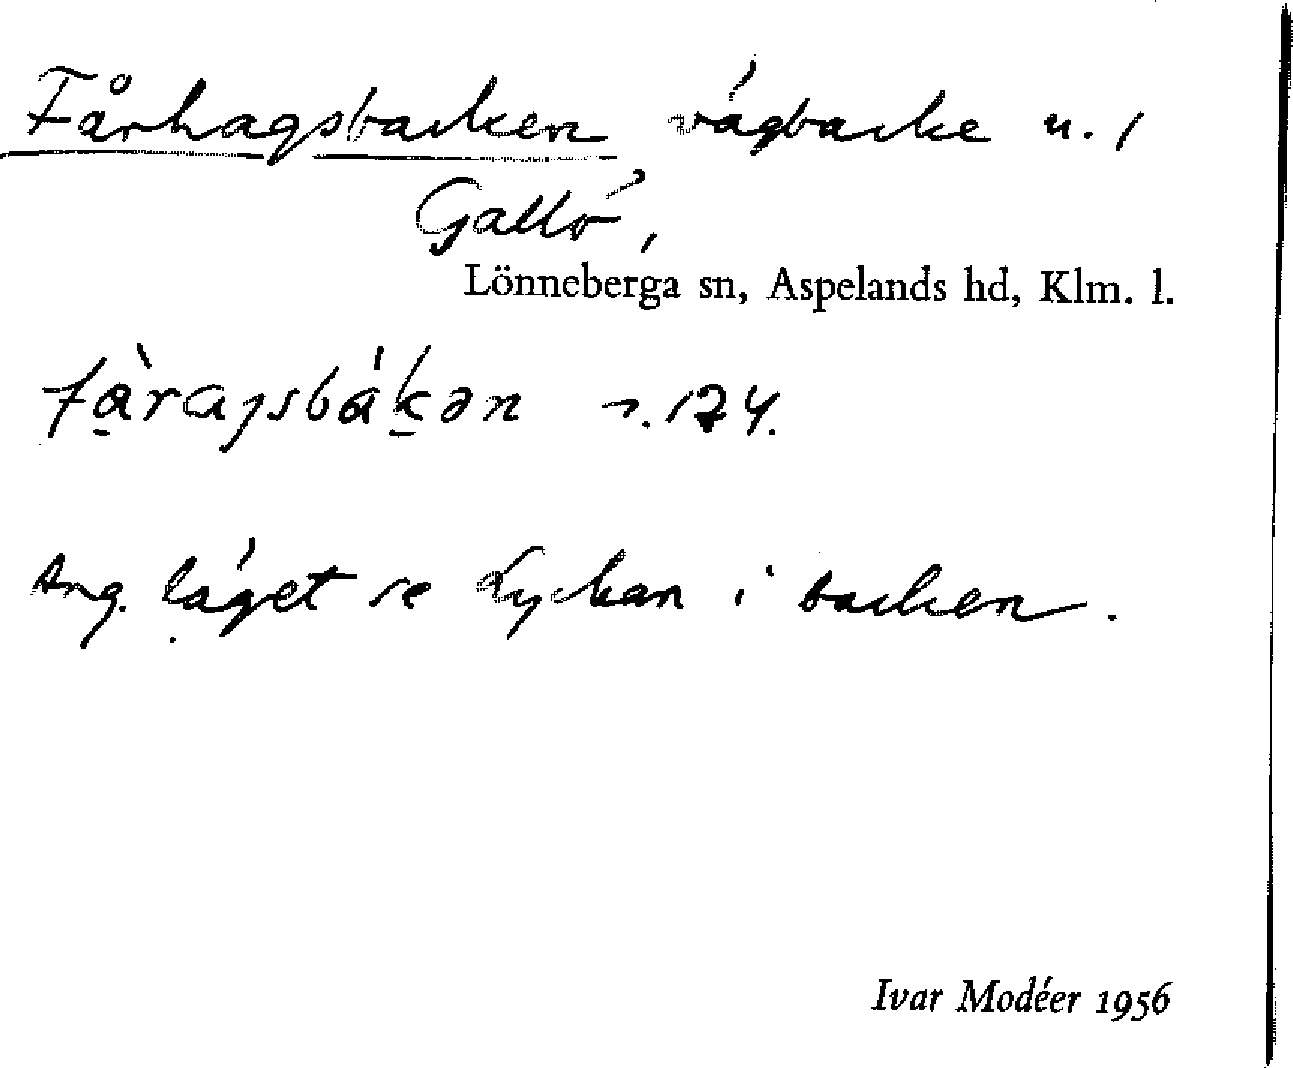 Fårhagsbacken vägbacke u. 1
Gallö,
Lönneberga sn, Aspelands hd, Klm. l.
fàragsbákən r. 124.
Ang. läget se Lyckan i backen.
Ivar Modéer 1956